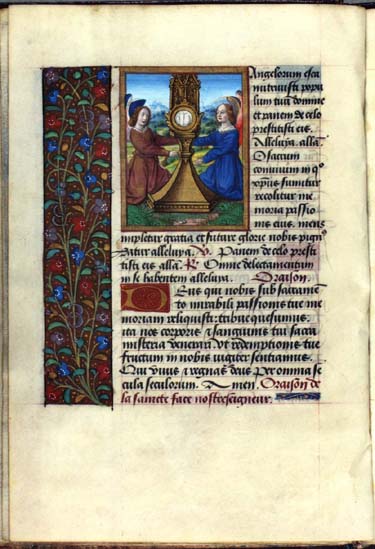 Angelorum esca
nutriuisti popu
lum tuū domine
et panem de celo
prestitisti eis.
Alleluya. alla.
O sacrum
conuiuium in q°
xp̄us sumitur
recolitur me
moria passio
nis eius. mens
impletur gratia et future glorie nobis pign9
datur alleluya. V. Panem de celo presti
tisti eis alla. R. Omne delectamentum
in se habentem alleluya. Oraison.
Deus qui nobis sub sacramen
to mirabili passionis tue me
moriam reliquisti: tribue quesumus.
ita nos corporis & sanguinis tui sacra
misteria venerari. vt redemptionis tue
fructum in nobis iugiter sentiamus.
Qui viuis & regnas deus per omnia se
cula seculorum. Amen. Oraison de
la saincte face nostreseigneur.